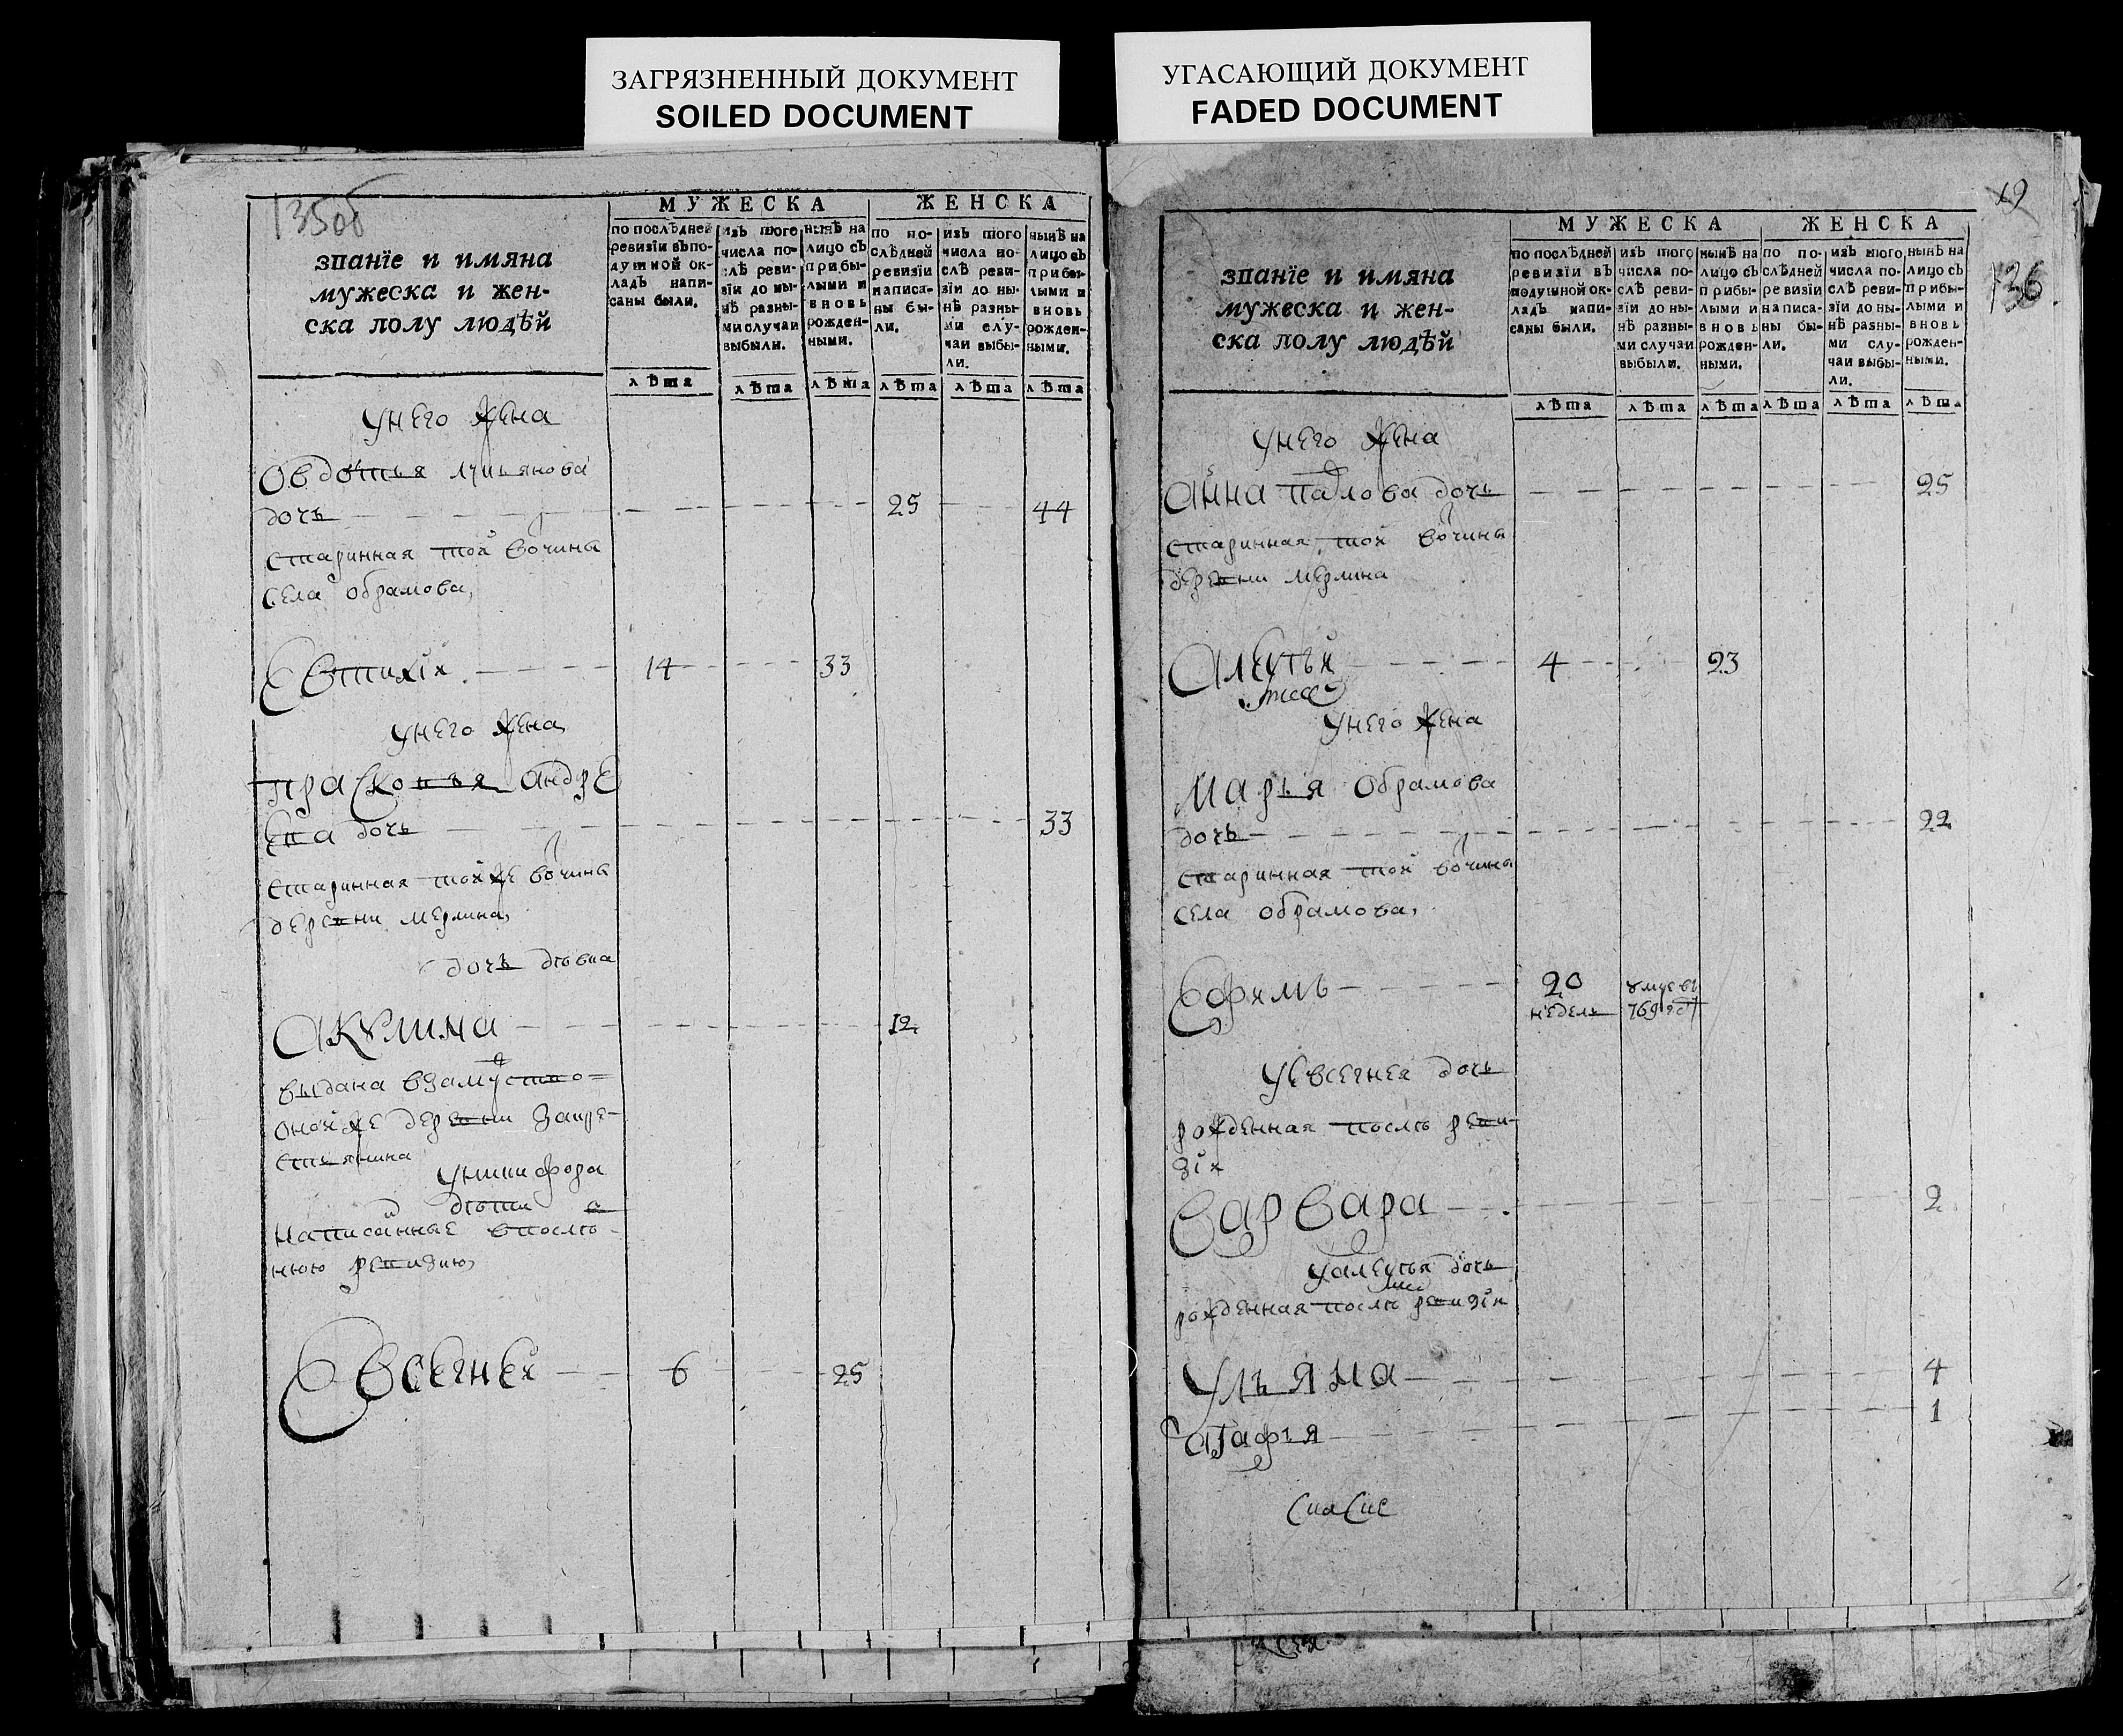 ЗАГРЯЗНЕННЫЙ ДОКУМЕНТ
SOILED DOCUMENT
УГАСАЮЩИЙ ДОКУМЕНТ
FADED DOCUMENT
135об
званїе и имяна
мужеска и жен-
ска полу людѣй
МУЖЕСКА
ЖЕНСКА
по послѣдней
ревизїи въ по-
душной ок-
ладъ напи-
саны были.
изъ того
числа по-
слѣ реви-
зїи до ны-
нѣ разны-
ми случаи
выбыли.
нынѣ на
лицо съ
прибы-
лыми и
вновь
рожден-
ными.
по по-
слѣдней
ревизїи
написа-
ны бы-
ли.
изъ того
числа по-
слѣ реви-
зїи до ны-
нѣ разны-
ми слу-
чаи выбы-
ли.
нынѣ на
лицо съ
прибы-
лыми и
вновь
рожден-
ными.
лѣта лѣта лѣта лѣта лѣта лѣта
унего жена
Овдотья лукьянова
дочь 25 44
старинная той вочины
села обрамова,
Евтихїй 14 33
унего жена
прасковья андрѣ
ева дочь 33
старинная тойже вочины
деревни мерлина,
дочь девка
Акулина 12
выдана взамуство
онойже деревни закре-
стьянина
уникифора
дети
написанные впослѣ-
нюю ревизию,
Евсегней 6 25
19
136
званїе и имяна
мужеска и жен-
ска полу людѣй
МУЖЕСКА
ЖЕНСКА
по послѣдней
ревизїи въ
подушной ок-
ладъ напи-
саны были.
изъ того
числа по-
слѣ реви-
зїи до ны-
нѣ разны-
ми случаи
выбыли.
нынѣ на
лицо съ
прибы-
лыми и
вновь
рожден-
ными.
по по-
слѣдней
ревизїи
написа-
ны бы-
ли.
изъ того
числа по-
слѣ реви-
зїи до ны-
нѣ разны-
ми слу-
чаи выбы-
ли.
нынѣ на
лицо съ
прибы-
лыми и
вновь
рожден-
ными.
лѣта лѣта лѣта лѣта лѣта лѣта
унего жена
Анна павлова дочь 25
старинная той вочины
деревни мерлина
4 23
унего жена
Марья обрамова
дочь 22
старинная той вочины
села обрамова,
Ефимъ 20
недель
769
уевсегнея дочь
рожденная послѣ реви-
зїи
Варвара 2
дочь
рожденная послѣ ревизїи
Ульяна 4
агафья 1